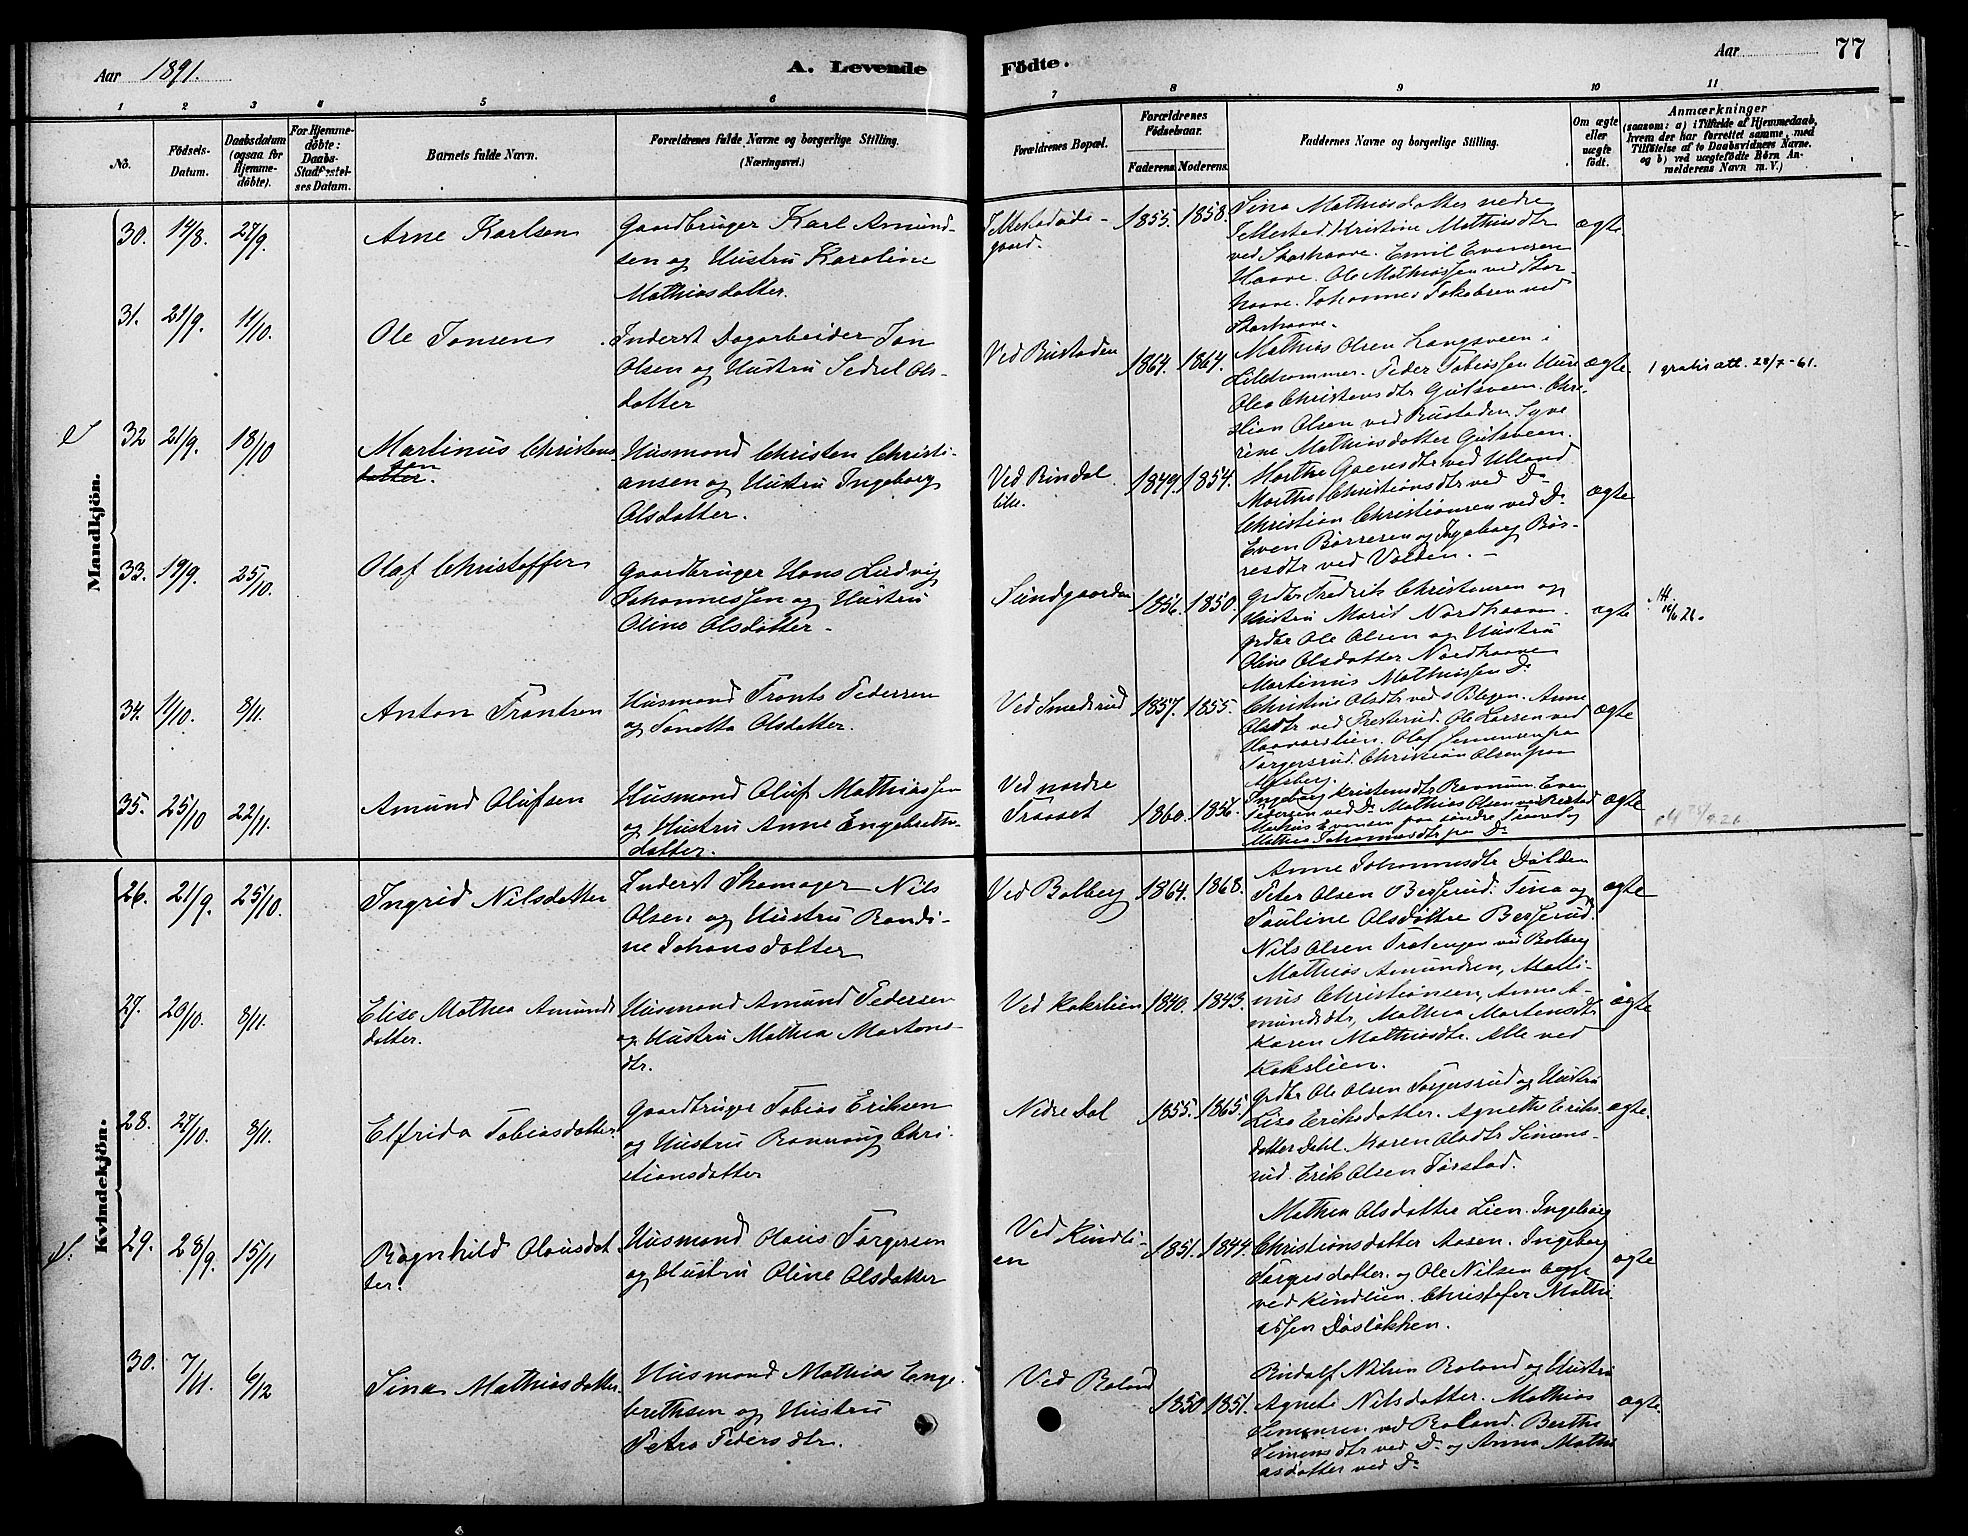 Aar 1891.
A. Levende
Födte.
Aar
77
1 2 3 4 5 6 7 8 9 10 11
No.
Födsels-
Datum.
Daabsdatum
(ogsaa for
Hjemme-
döbte).
For Hjemme-
döbte:
Daabs-
Stadfæstel-
ses Datum.
Barnets fulde Navn.
Forældrenes fulde Navne og borgerlige Stilling.
(Næringsvei.)
Forældrenes Bopæl.
Forældrenes
Födselsaar.
Faderens. Moderens.
Faddernes Navne og borgerlige Stilling.
Om ægte
eller
uægte
födt.
Anmærkninger
(saasom: a) i Tilfælde af Hjemmedaab,
hvem der har forrettet samme, med
Tilföielse af to Daabsvidners Navne.
og b) ved uægtefödte Börn An-
melderens Navn m. V.)
Mandkjön.
30. 14/8. 27/9.
Arne Karlsen
Gaardbruger Karl Amund-
sen og Hustru Karoline
Mathiasdatter.
gaard.
1855. 1858.
Sina Mathiasdatter nedre
Jellestad. Kristine Mathiasdtr
ved Storhaave. Emil Evensen
Haave. Ole Mathiassen ved Stor-
haave. Johannes Jakobsen ved
Storhaave.
ægte
31. 21/9. 11/10.
Ole Jonsen
Inderst Dagarbeider Jon
Olsen og Hustru Sedsel Ols-
datter
Ved Bustaden
1864. 1864.
Mathias Olsen Langsveen i
Lillehammer. Peder Tobiassen
Olea Christensdtr Gutsveen. Chri-
stian Olsen ved Bustaden. Syve-
rine Mathiasdatter Gutsveen.
ægte.
1 gratis att. 28/7-61.
32 21/9. 18/10
Martinus Christens
sen
datter.
Husmand Christen Christi-
ansen og Hustru Ingeborg
Olsdatter.
Ved Rindal
lille.
1849. 1854.
Marthe ved Ulland
Marthe Christiansdtr ved Do
Christian Christiansen ved Do
Even Børresen og Ingeborg Bør-
resdtr ved Volden. -
ægte
33. 19/9. 25/10.
Olaf Christoffer
Gaardbruger Hans Ludvig
Johannessen og Hustru
Oline Olsdatter -
Sundgaarden
1856. 1850.
Grdbr Fredrik Christensen og
Hustru Marit Nordhaave.
Grdbr Ole Olsen og Hustru
Oline Olsdatter Nordhaave
Martinus Mathiassen Do
ægte
34. 11/10. 8/11.
Anton Frantsen
Husmand Frants Pedersen
og Jonetta Olsdatter.
Ved Smedsrud
1857. 1855.
Christine Olsdtr ved Blegen. Anne
Olsdtr ved Presterud. Ole Larsen ved
Haavarslien. Olaf Simensen paa
Torgersrud. Christian Olsen paa
Mosberg.
ægte
35. 25/10 22/11.
Amund Olufsen
Husmand Oluf Mathiassen
og Hustru Anne Engebrets-
datter.
Ved nordre
Traaset
1860. 1856.
Ingeborg Kristensdtr Rannum. Even
Pedersen ved Do Mathias Olsen
Mathias Evensen paa søndre
Mathea Johannesdtr paa Do
ægte
Kvindekjön.
26. 21/9. 25/10.
Ingrid Nilsdatter
Inderst Skomager Nils
Olsen og Hustru Randi-
ne Johansdatter
Ved Bolberg
1864. 1868.
Anne Johannesdtr Dalden
Peter Olsen Besserud. Sina og
Pauline Olsdøttre Besserud.
Nils Olsen ved Bolberg
ægte
27. 20/10. 8/11.
Elise Mathea Amunds
datter.
Husmand Amund Pedersen
og Hustru Mathea Martens-
dtr.
Ved Kokslien
1840. 1843.
Mathias Amundsen, Marti-
nus Christiansen, Anne A-
mundsdtr, Mathea Martensdtr
Karen Mathiasdtr. Alle ved
Kokslien.
ægte
28. 27/10. 8/11.
Elfrida Tobiasdatter.
Gaardbruger Tobias Eriksen
og Hustru Rannoug Chri-
stiansdatter
Nedre Dal
1855. 1865.
Grdbr Ole Olsen Torgersrud og Hustru
Lise Eriksdatter. Agnethe Eriks-
datter Dahl. Karen Olsdtr Simens-
rud. Erik Olsen Jørstad.
ægte.
29. 28/9. 15/11
Ragnhild Olausdat
ter.
Husmand Olaus Torgersen
og Hustru Oline Olsdatter
Ved Kindli-
en
1851. 1844.
Mathea Olsdatter Lien. Ingeborg
Christiansdatter Aasen. Ingeborg
Torgersdatter. og Ole Nilsen begge
ved Kindlien. Christofer Mathi-
assen Døsløkken.
ægte
30. 7/11. 6/12
Sina Mathiasdatter.
Husmand Mathias Enge-
brethsen og Hustru
Petra Pedersdtr.
Ved Roland
1850 1851.
Rudolf Nilsen Roland og Hustru
Agnete Nilsdatter. Mathias
Simensen ved Roland. Berthe
Simensdtr ved Do og Anna Mathi
asdatter ved Do
ægte.